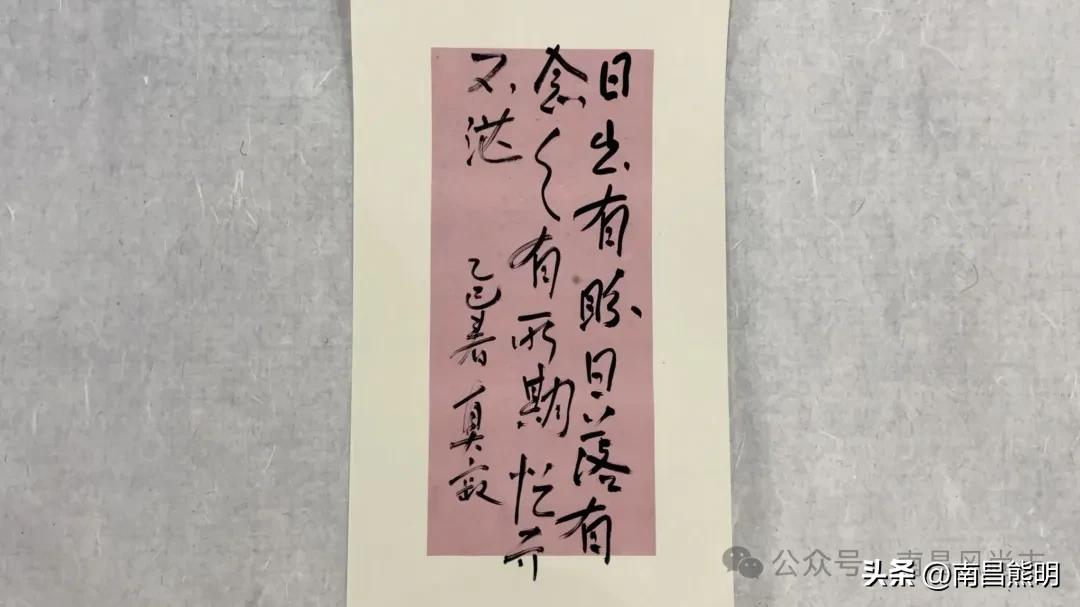 日出有盼日落有
念心有所期忙而
不茫
乙巳 真寂
公众号 南昌风尚
头条 @南昌熊明